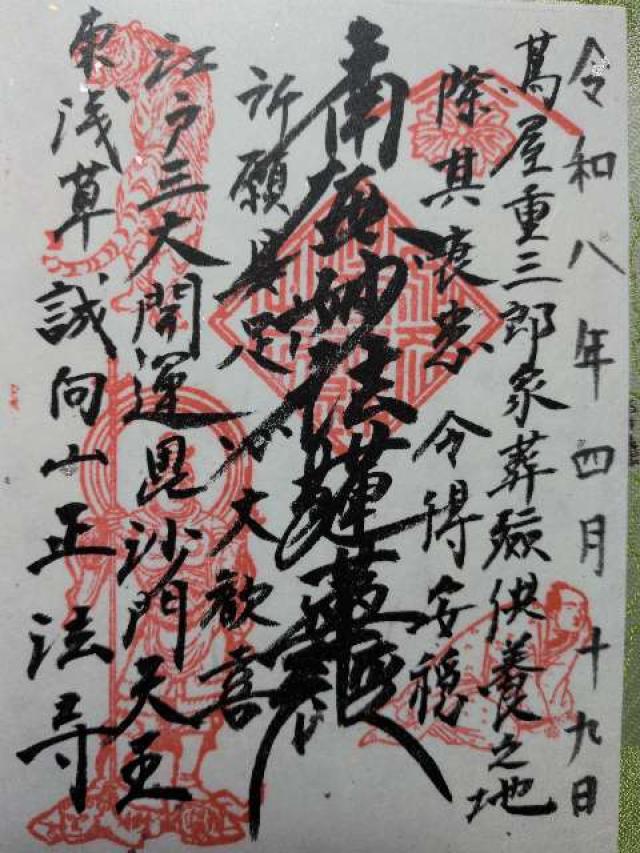 令和八年四月十九日
蔦屋重三郎家葬殮供養之地
除其衰患 令得安穏
南無妙法蓮華経
所願具足 心大歓喜
江戸三大開運毘沙門天王
東浅草 誠向山正法寺